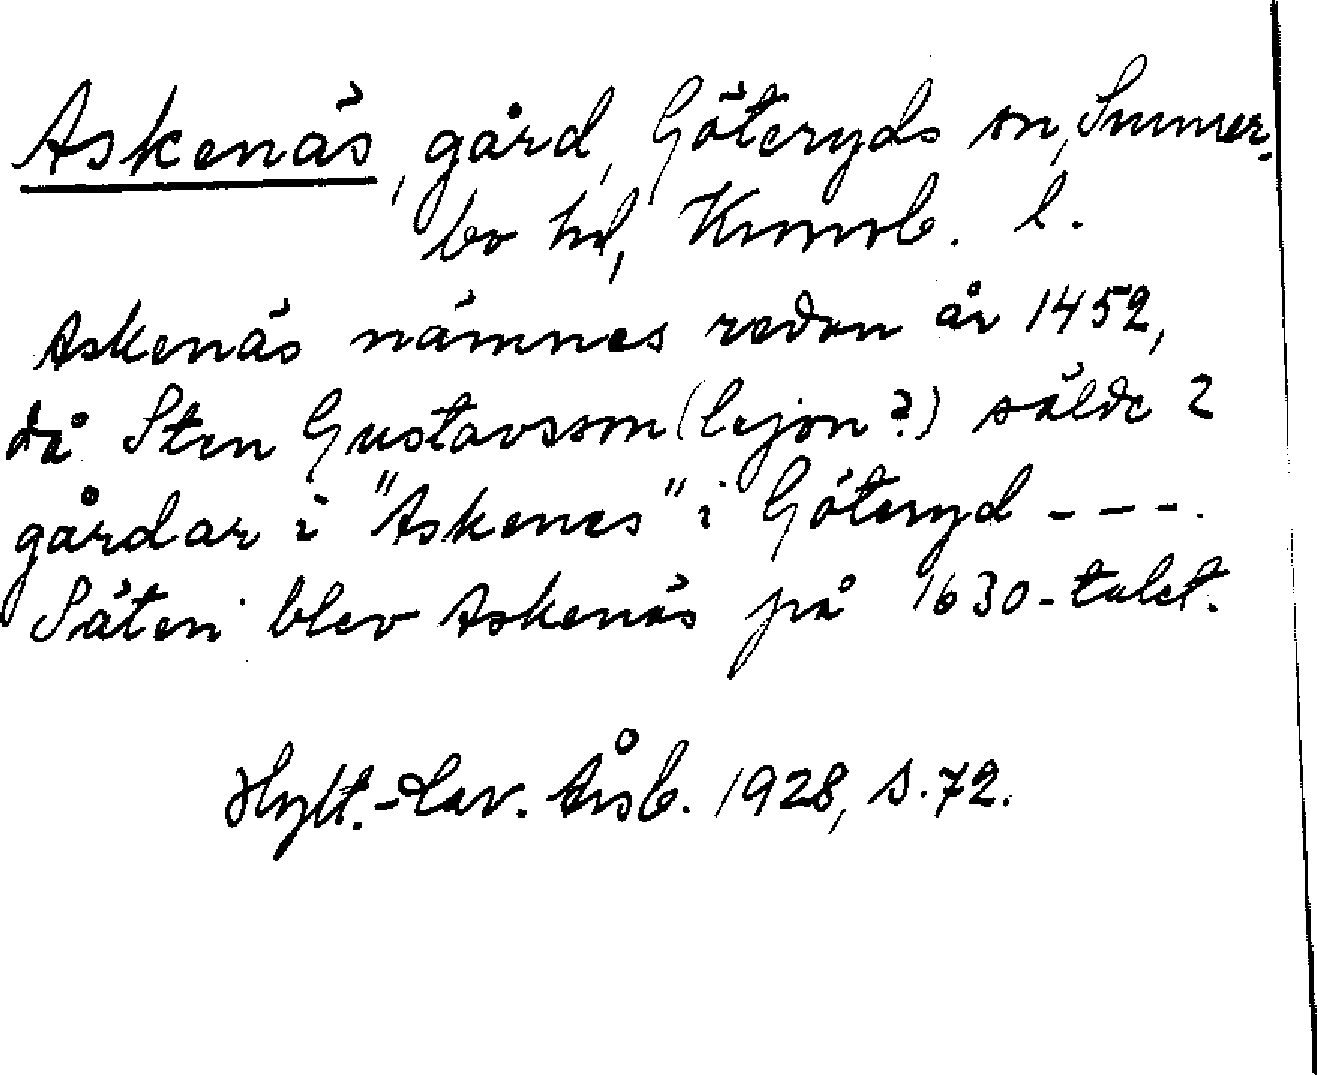 Askenäs, gård, Göteryds sn, Sunner-
bo hd, Kronob. l.
Askenäs nämnes redan år 1452,
då Sten Gustavsson (lejon?) sålde 2
gårdar i "Askenes" i Göteryd ---.
Säteri blev Askenäs på 1630-talet.
Hylt.-Cav. Årsb. 1928, s. 72.